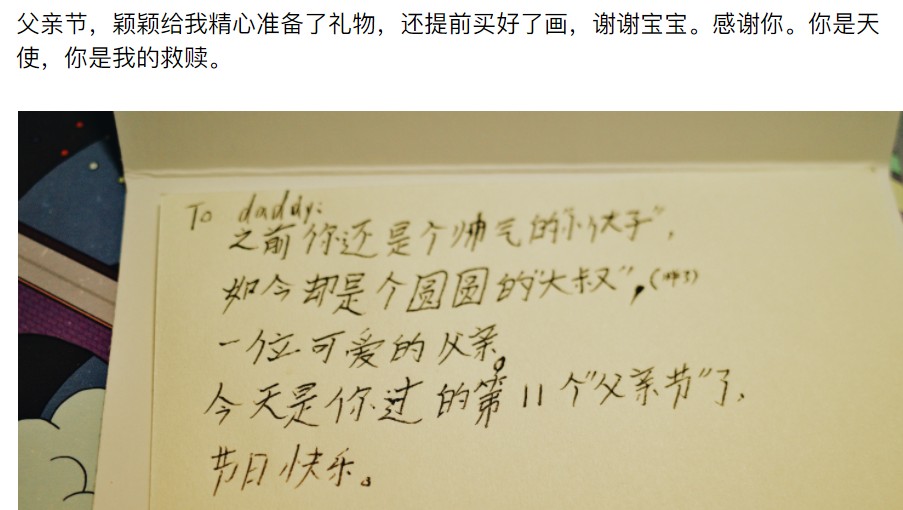 父亲节，颖颖给我精心准备了礼物，还提前买好了画，谢谢宝宝。感谢你。你是天
使，你是我的救赎。
To daddy:
之前你还是个帅气的“小伙子”，
如今却是个圆圆的“大叔”，
一位可爱的父亲。
今天是你过的第11个“父亲节”了，
节日快乐。